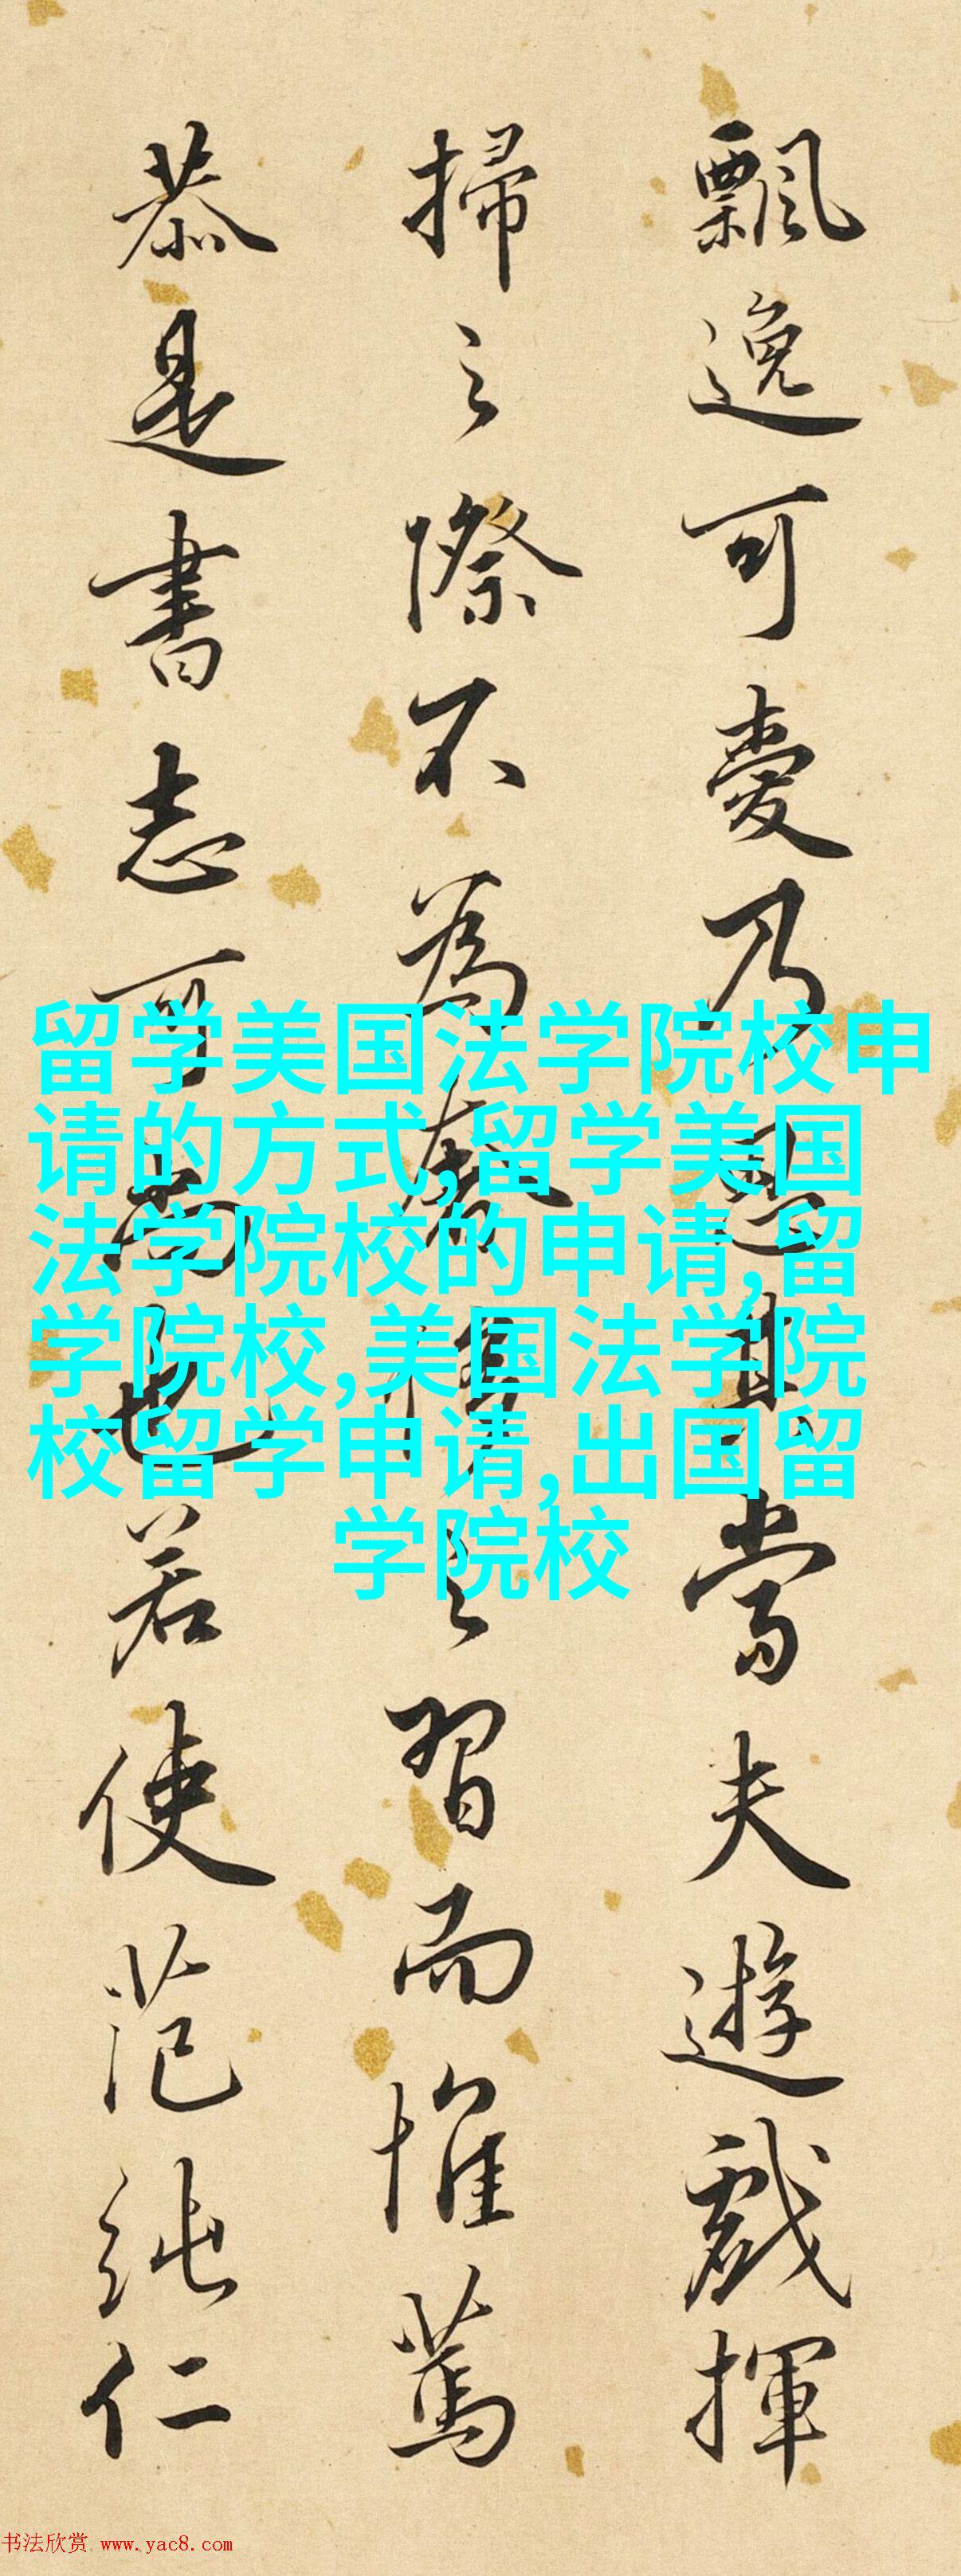 飄逸可愛乃思其當夫遊戲揮
掃之際不為
之習而惟篤
恭是書志可尚也若使范純仁
留学美国法学院校申
请的方式,留学美国
法学院校的申请,留
学院校,美国法学院
校留学申请,出国留
学院校
书法欣赏 www.yac8.com